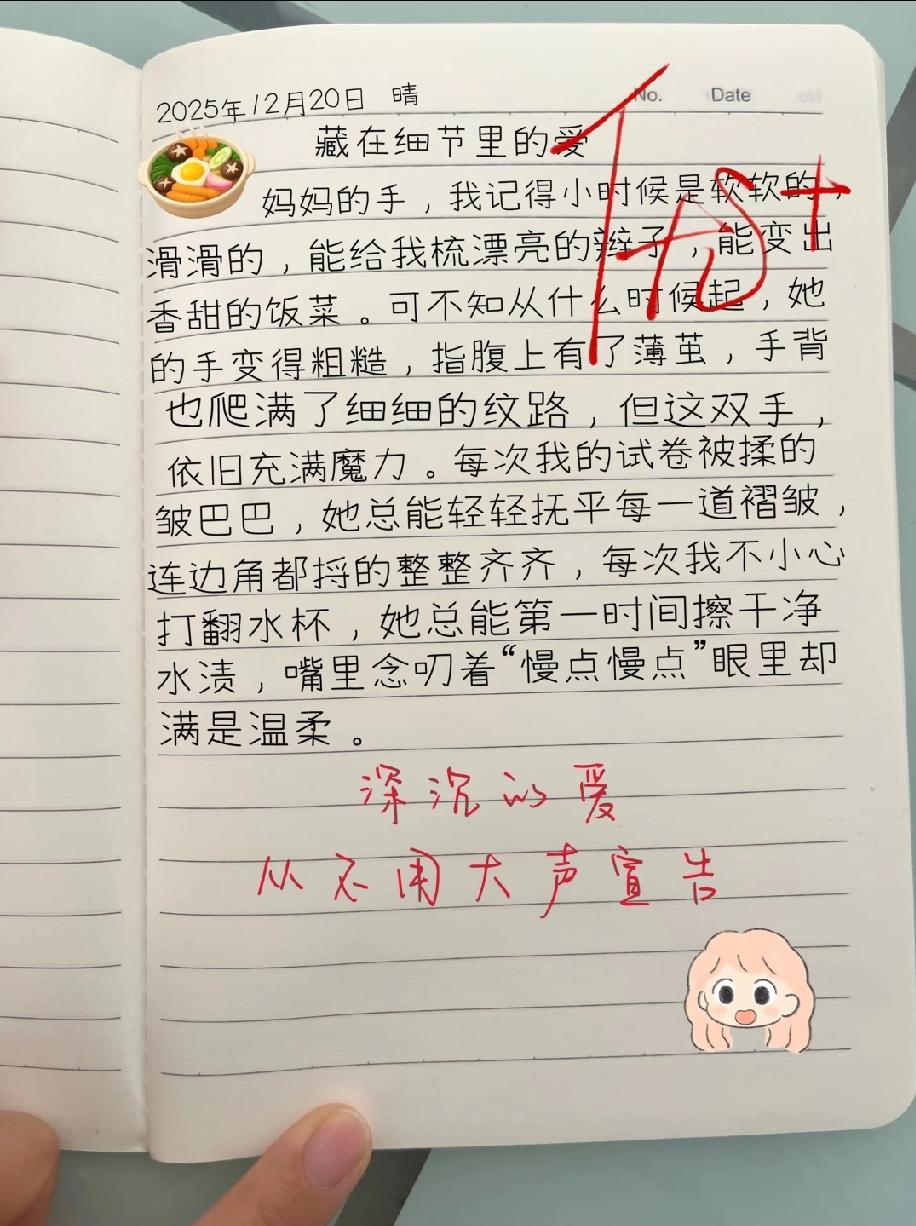 2025年12月20日 晴
No. Date
藏在细节里的爱
优+
妈妈的手，我记得小时候是软软的，
滑滑的，能给我梳漂亮的辫子，能变出
香甜的饭菜。可不知从什么时候起，她
的手变得粗糙，指腹上有了薄茧，手背
也爬满了细细的纹路，但这双手，
依旧充满魔力。每次我的试卷被揉的
皱巴巴，她总能轻轻抚平每一道褶皱，
连边角都捋的整整齐齐，每次我不小心
打翻水杯，她总能第一时间擦干净
水渍，嘴里念叨着“慢点慢点”眼里却
满是温柔。
深沉的爱
从不用大声宣告